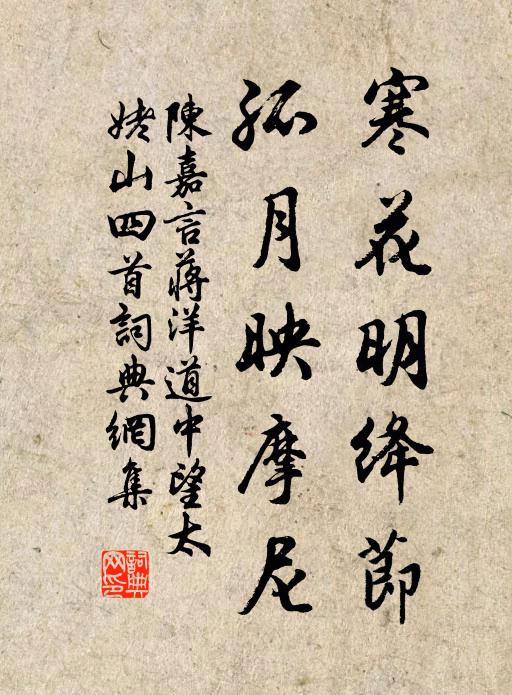 寒花明絳節
孤月映摩尼
陳嘉言蔣洋道中望太
姥山四首詞典網集
詞典
网印